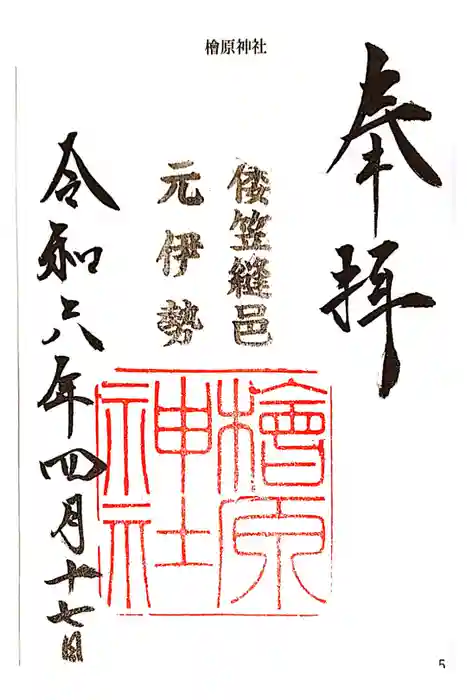 檜原神社
奉拝
倭笠縫邑
元伊勢
檜原神社
令和六年四月十七日
5